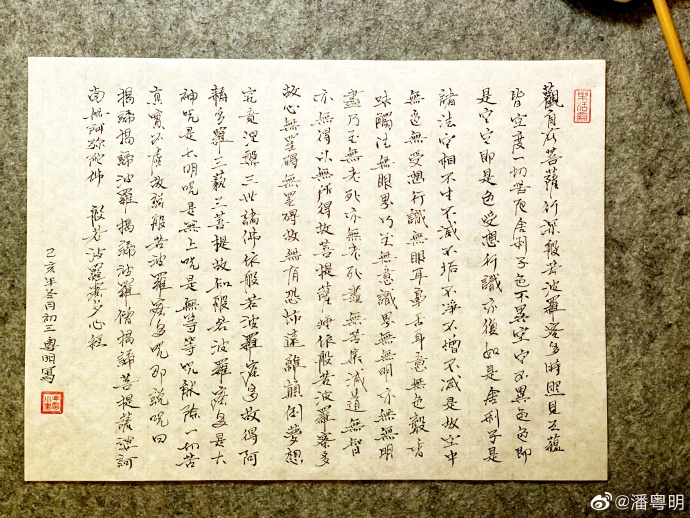 觀自在菩薩行深般若波羅蜜多時照見五蘊
皆空度一切苦厄舍利子色不異空空不異色色即
是空空即是色受想行識亦復如是舍利子是
諸法空相不生不滅不垢不淨不增不減是故空中
無色無受想行識無眼耳鼻舌身意無色聲香
味觸法無眼界乃至無意識界無無明亦無無明
盡乃至無老死亦無老死盡無苦集滅道無智
亦無得以無所得故菩提薩埵依般若波羅蜜多
故心無罣礙無罣礙故無有恐怖遠離顛倒夢想
究竟涅槃三世諸佛依般若波羅蜜多故得阿
耨多羅三藐三菩提故知般若波羅蜜多是大
神咒是大明咒是無上咒是無等等咒能除一切苦
真實不虛故說般若波羅蜜多咒即說咒曰
揭諦揭諦波羅揭諦波羅僧揭諦菩提薩婆訶
南無阿彌陀佛 般若波羅蜜多心經
己亥年冬月初三 粵明寫
@潘粤明